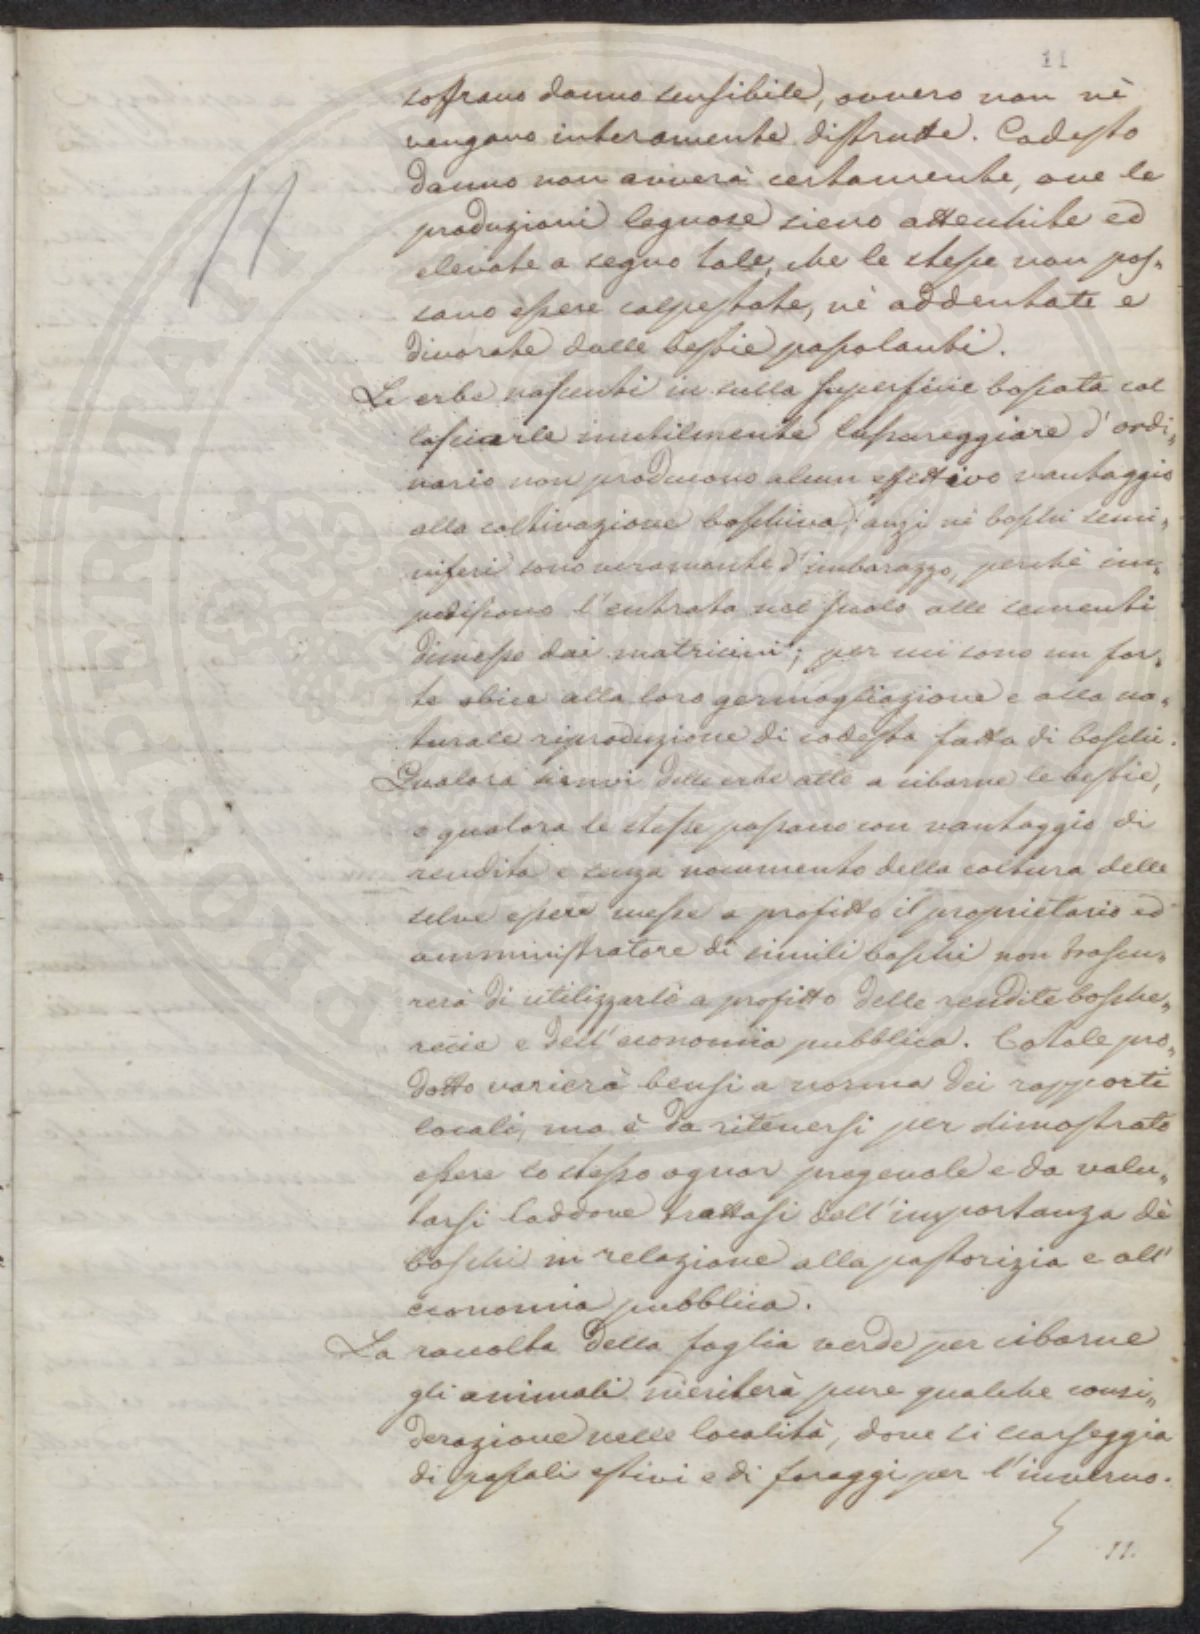 11
soffrano danno sensibile, ovvero non nè
vengano interamente distrutte. Codesto
danno non avverà certamente, ove le
produzioni legnose sieno attecchite ed
elevate a segno tale, che le stesse non pos„
sano essere calpestate, nè addentate e
divorate dalle bestie pascolanti.
Le erbe nascenti in sulla superficie boscata col
lasciarle inutilmente lussureggiare d'ordi„
nario non producono alcun effettivo vantaggio
alla coltivazione boschiva; anzi nè boschi semi„
niferi sono veramente d'imbarazzo, perchè im„
pediscono l'entrata nel suolo alle sementi
dimesse dai matricini; per cui sono un for„
te obice alla loro germogliazione e alla na„
turale riproduzione di codesta fatta di boschi.
Qualora sienvi delle erbe atte a cibarne le bestie,
e qualora le stesse possano con vantaggio di
rendita e senza nocumento della coltura delle
selve essere messe a profitto il proprietario ed
amministratore di simili boschi non trascu„
rerà di utilizzarle a profitto delle rendite bosche„
reccie e dell'economia pubblica. Cotale pro„
dotto varierà bensi a norma dei rapporti
locali, ma è da ritenersi per dimostrato
essere lo stesso ognor pregevole e da valu„
tarsi laddove trattasi dell'importanza dè
boschi in relazione alla pastorizia e all'
economia pubblica.
La raccolta della foglia verde per cibarne
gli animali meriterà pure qualche consi„
derazione nelle località, dove si scarseggia
di pascoli estivi e di foraggi per l'inverno.
11.
PROSPERITATI